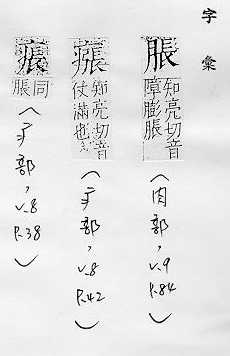 字彙
脹
知亮切音
障膨脹
(肉部, v.9
P.84)
瘬
知亮切音
仗滿也
(疒部, v.8
P.42)
痮
同
脹
(疒部, v.8
P.38)